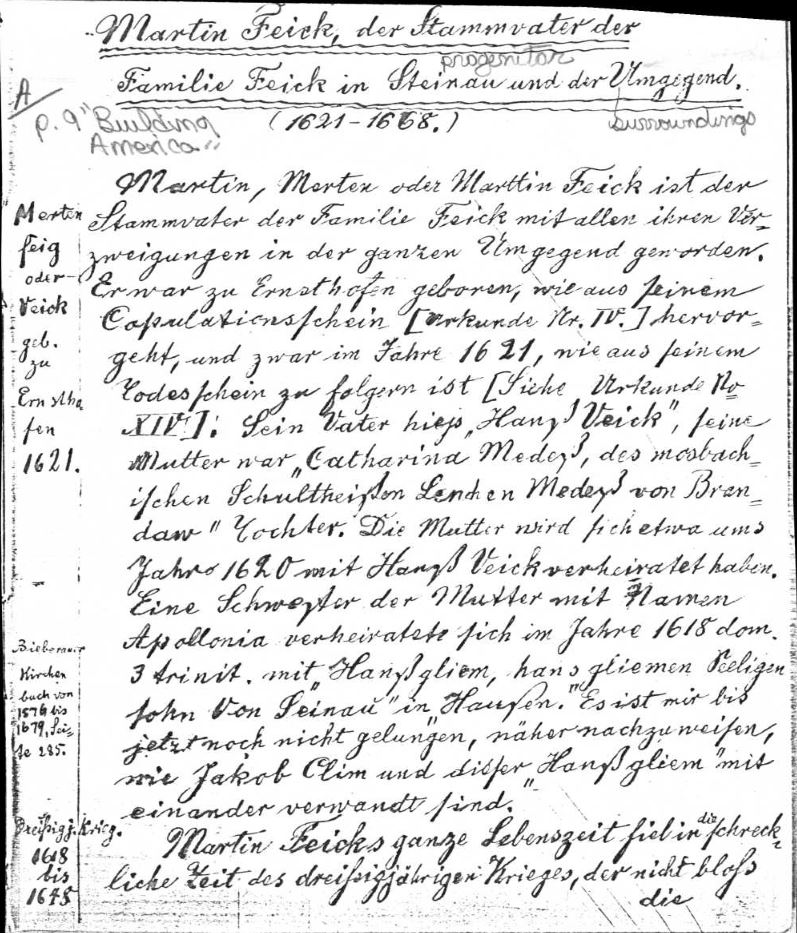 Martin Feick, der Stammvater der
progenitor
Familie Feick in Steinau und der Umgegend.
A
p. 9 "Building
America"
(1621-1668.)
surroundings
Martin, Merten oder Marttin Feick ist der
Stammvater der Familie Feick mit allen ihren Ver-
zweigungen in der ganzen Umgegend geworden.
Er war zu Ernsthofen geboren, wie aus seinem
Copulationsschein [Urkunde Nr. IV.] hervor-
geht, und zwar im Jahre 1621, wie aus seinem
Todesschein zu folgern ist [Siehe Urkunde No
XIV]. Sein Vater hiess „Hanß Veick", seine
Mutter war „Catharina Medeß, des mosbach-
ischen Schultheißen Medeß von Bran-
daw" Tochter. Die Mutter wird sich etwa ums
Jahr 1620 mit Hanß Veick verheiratet haben.
Eine Schwester der Mutter mit Namen
Apollonia verheiratete sich im Jahre 1618 dom.
3 trinit. mit „Hanß gliem, hans gliemen Seeligen
sohn von Seinau" in Hausen." Es ist mir bis
jetzt noch nicht gelungen, näher nachzuweisen,
wie Jakob Clim und dieser „Hanß gliem" mit
einander verwandt sind.
Martin Feicks ganze Lebenszeit fiel in die schreck-
liche Zeit des dreissigjährigen Krieges, der nicht bloss
die
Merten
feig
oder
Veick
geb.
zu
Ernstho
fen
1621.
Bieberauer
Kirchen
buch von
1576 bis
1679, Sei-
te 285.
Dreißigj. Krieg.
1618
bis
1648